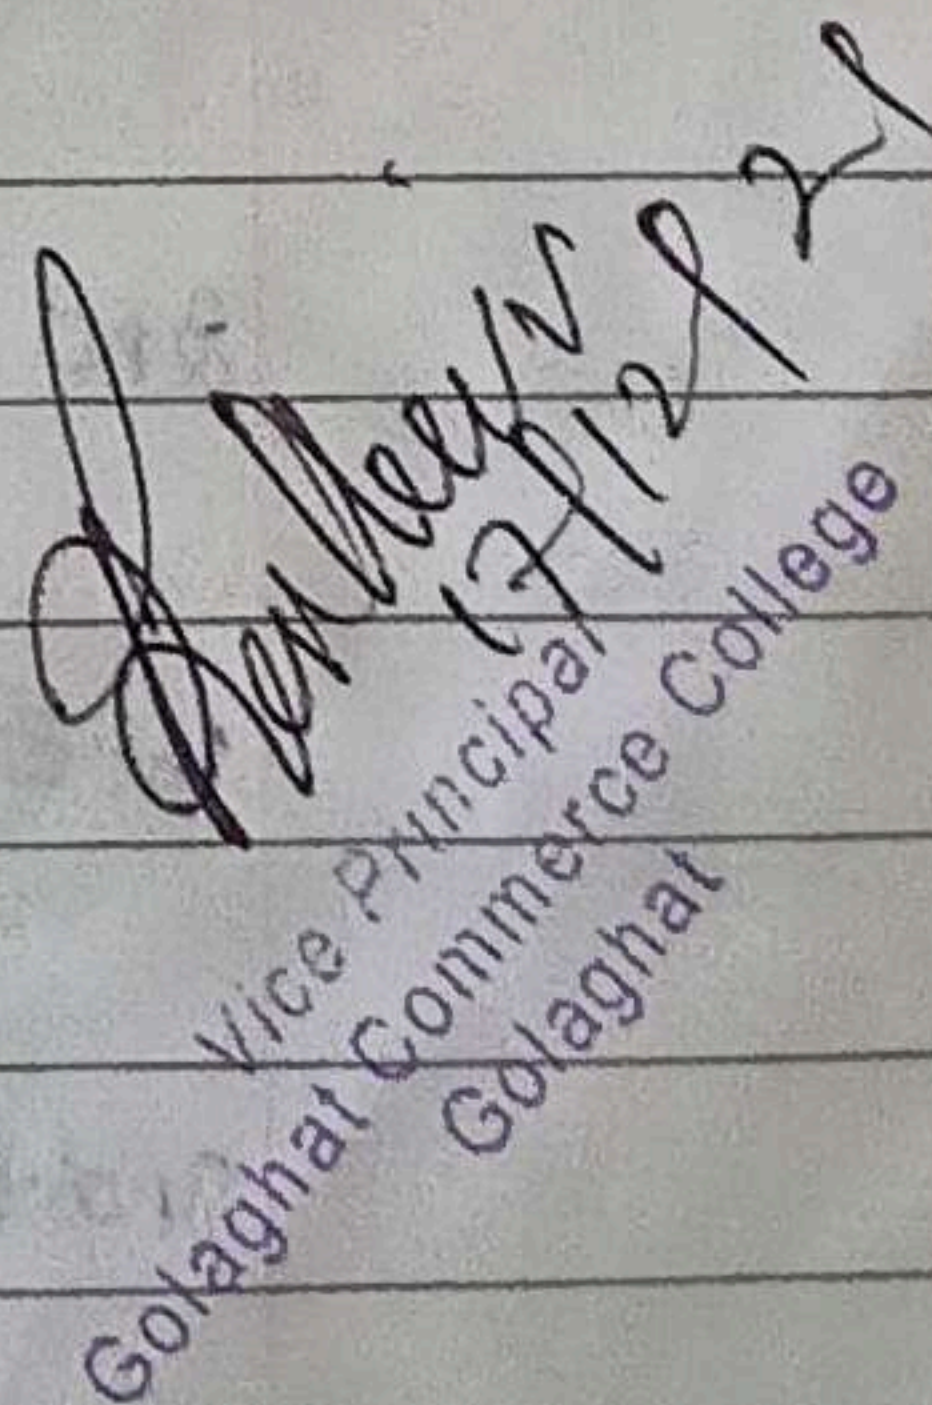 17/12/21
Vice Principal
Golaghat Commerce College
Golaghat